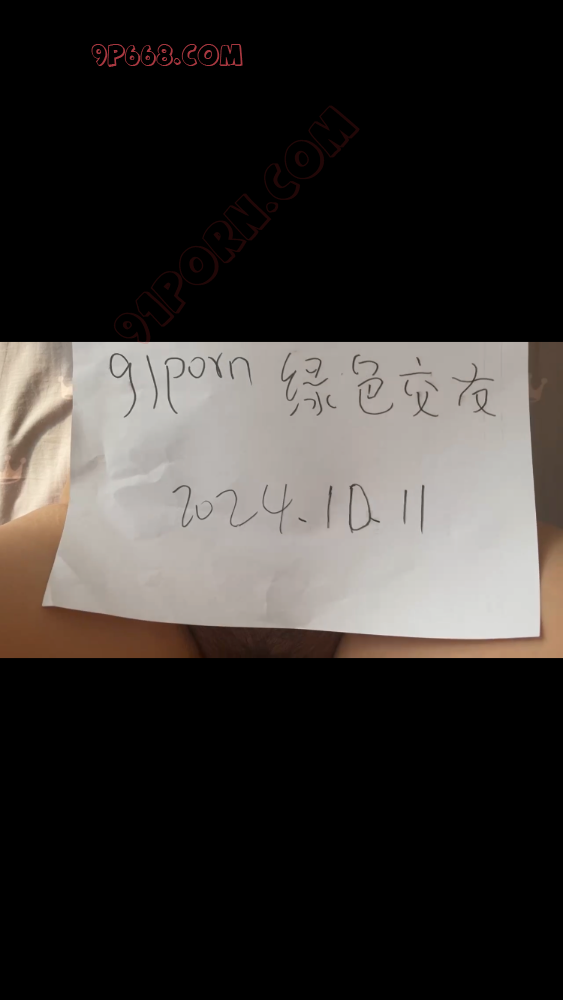 9P668.COM
91PORN.COM
91porn 绿色交友
2024.10.11